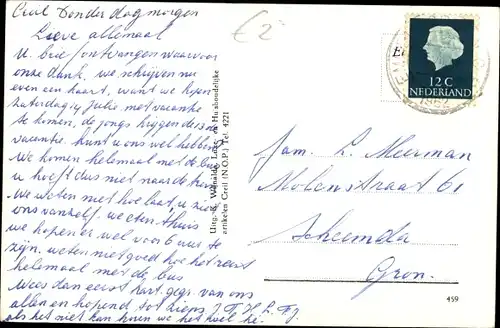 Creil Donderdagmorgen
Lieve allemaal
U. brief ontvangen waarvoor
onze dank, we schrijven nu
even een kaart, want we hopen
Zaterdag 14 Julie met vacantie
te komen, de jongs krijgen de 13
vacantie. kunt u ons wel hebben
We komen helemaal met de bus
u hoeft dus niet naar de trein
We weten niet hoe laat u ziet
ons vanzelf. we eten thuis
we hopen er wel voor 6 uur te
zijn, weten niet goed hoe het reist
helemaal met de bus
Wees dan eerst hart. gegr. van ons
allen en hopend tot ziens J. T. H. L. Fj.
als het niet kan horen we het wel hè.
€ 2
Uitg. Luxe- en Huishoudelijke
artikelen Creil (N.O.P.) Tel. 4221
12 C
NEDERLAND
1962
Fam. L. Meerman
Molenstraat 61
Scheemda
Gron.
459